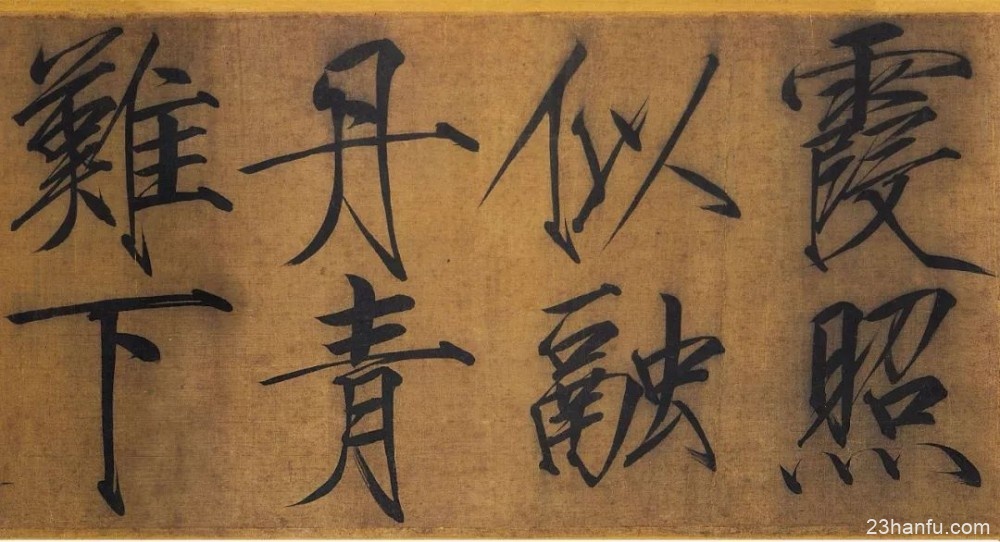 霞照
似融
丹青
難下
23hanfu.com